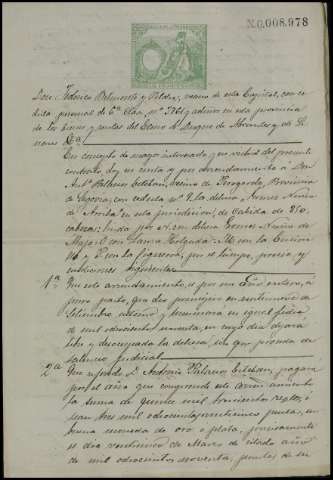 N.0.008.978
Don Federico Belmonte y Vildez, vecino de esta Capital, con cé
dula personal de 6ª Clase Nº 3261 y admor. en esta provincia
de los bienes y rentas del Exmo Sr. Duque de Abrantes y de Li
nares &ª
En concepto de mayor interesado, y en virtud del presente
contrato doy en renta y por arrendamiento á Don
Antº Palacios Esteban, vecino de Provincia
de Segovia, con cédula nº la dehesa Arenes Nuñez
de Arriba en esta jurisdiccion; de Cabida de 850
cabezas: linda por N. con dehesa Nuñez de
Abajo O con M con la
y P con la por el tiempo, precio y
condiciones siguientes
1ª Que este arrendamiento, es por un Año entero, á
puro pasto, que dió principio en veintinueve de
Setiembre último y terminará en igual fecha
de mil ochocientos noventa, en cuyo dia dejará
libre y desocupada la dehesa sin que preceda de
sahucio judicial
2ª Que referido D. Antonio Palacios Esteban, pagará
por el año que comprende este arrendamiento
la suma de quince mil trescientos reales, ó
sean tres mil ochocientas veinticinco pesetas, en
buena moneda de oro ó plata, precisamente
el dia veintinueve de Marzo de citado año
de mil ochocientos noventa, puestas de su